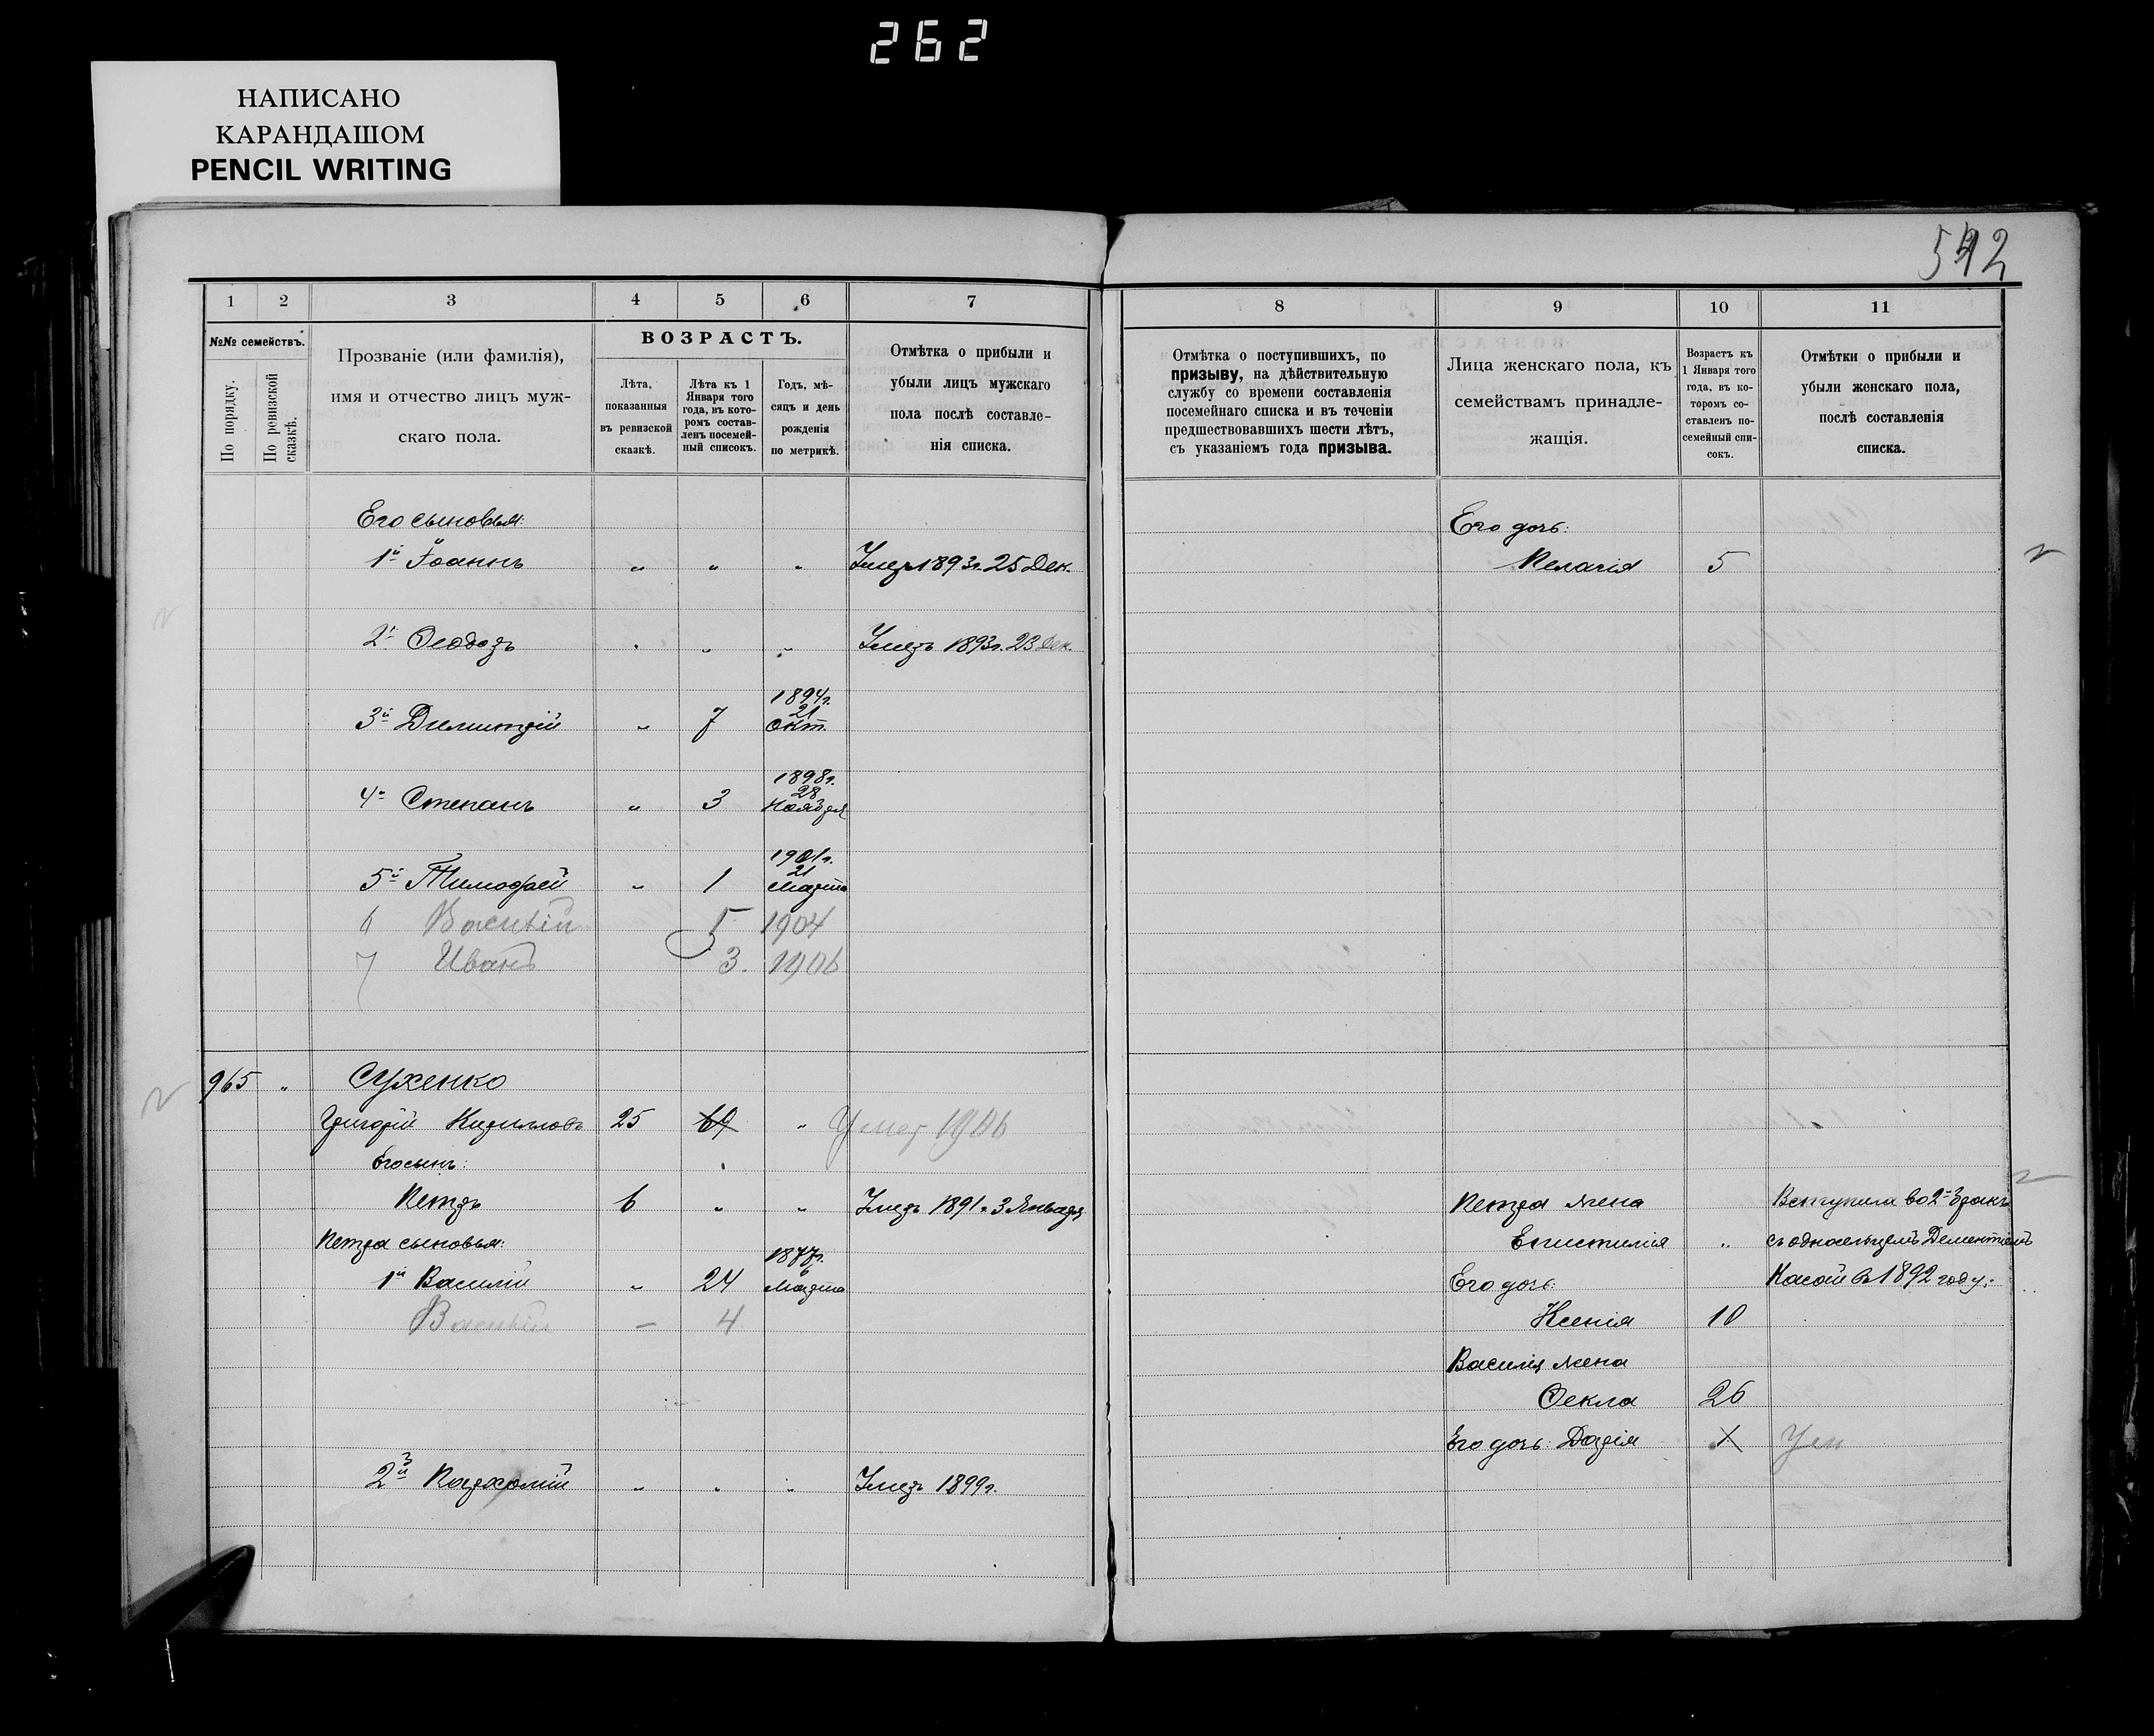 262
НАПИСАНО
КАРАНДАШОМ
PENCIL WRITING
542
1 2 3 4 5 6 7
№№ семействъ.
По порядку.
По ревизской сказкѣ.
Прозваніе (или фамилія),
имя и отчество лицъ муж-
скаго пола.
ВОЗРАСТЪ.
Лѣта,
показанныя
въ ревизской
сказкѣ.
Лѣта къ 1
Января того
года, въ кото-
ромъ состав-
ленъ посемей-
ный списокъ.
Годъ, мѣ-
сяцъ и день
рожденія
по метрикѣ.
Отмѣтка о прибыли и
убыли лицъ мужскаго
пола послѣ составле-
нія списка.
Его сыновья:
1й Іоаннъ " " " Умеръ 1893г. 25 Дек.
2й Ѳеодоръ " " " Умеръ 1893г. 23 Дек.
1894г.
21
3й Димитрій " 7 Окт.
1898г.
28
4й Степанъ " 3 Ноября
1901г.
21
5й Тимофей " 1 Марта
6 Василій 5 1904
7 Иванъ 3. 1906
965 " Сухенко
Григорій Кирилловъ 25 69 " Умер 1906
Его сынъ:
Петръ 6 " " Умеръ 1891г. 3 Января
Петра сыновья:
1877г.
6
1й Василій " 24 Марта
Василій — 4
3
2й Пархомій " " " Умеръ 1899г.
8 9 10 11
Отмѣтка о поступившихъ, по
призыву, на дѣйствительную
службу со времени составленія
посемейнаго списка и въ теченіи
предшествовавшихъ шести лѣтъ,
съ указаніемъ года призыва.
Лица женскаго пола, къ
семействамъ принадле-
жащія.
Возрастъ къ
1 Января того
года, въ ко-
торомъ со-
ставленъ по-
семейный спи-
сокъ.
Отмѣтки о прибыли и
убыли женскаго пола,
послѣ составленія
списка.
Его дочь:
Пелагія 5
Петра жена Вступила во 2й бракъ
Епистилія " съ односельцемъ Дементіемъ
Его дочь: Касай въ 1892 году.
Ксенія 10
Василія жена
Ѳекла 26
Его дочь: Дарія Ум